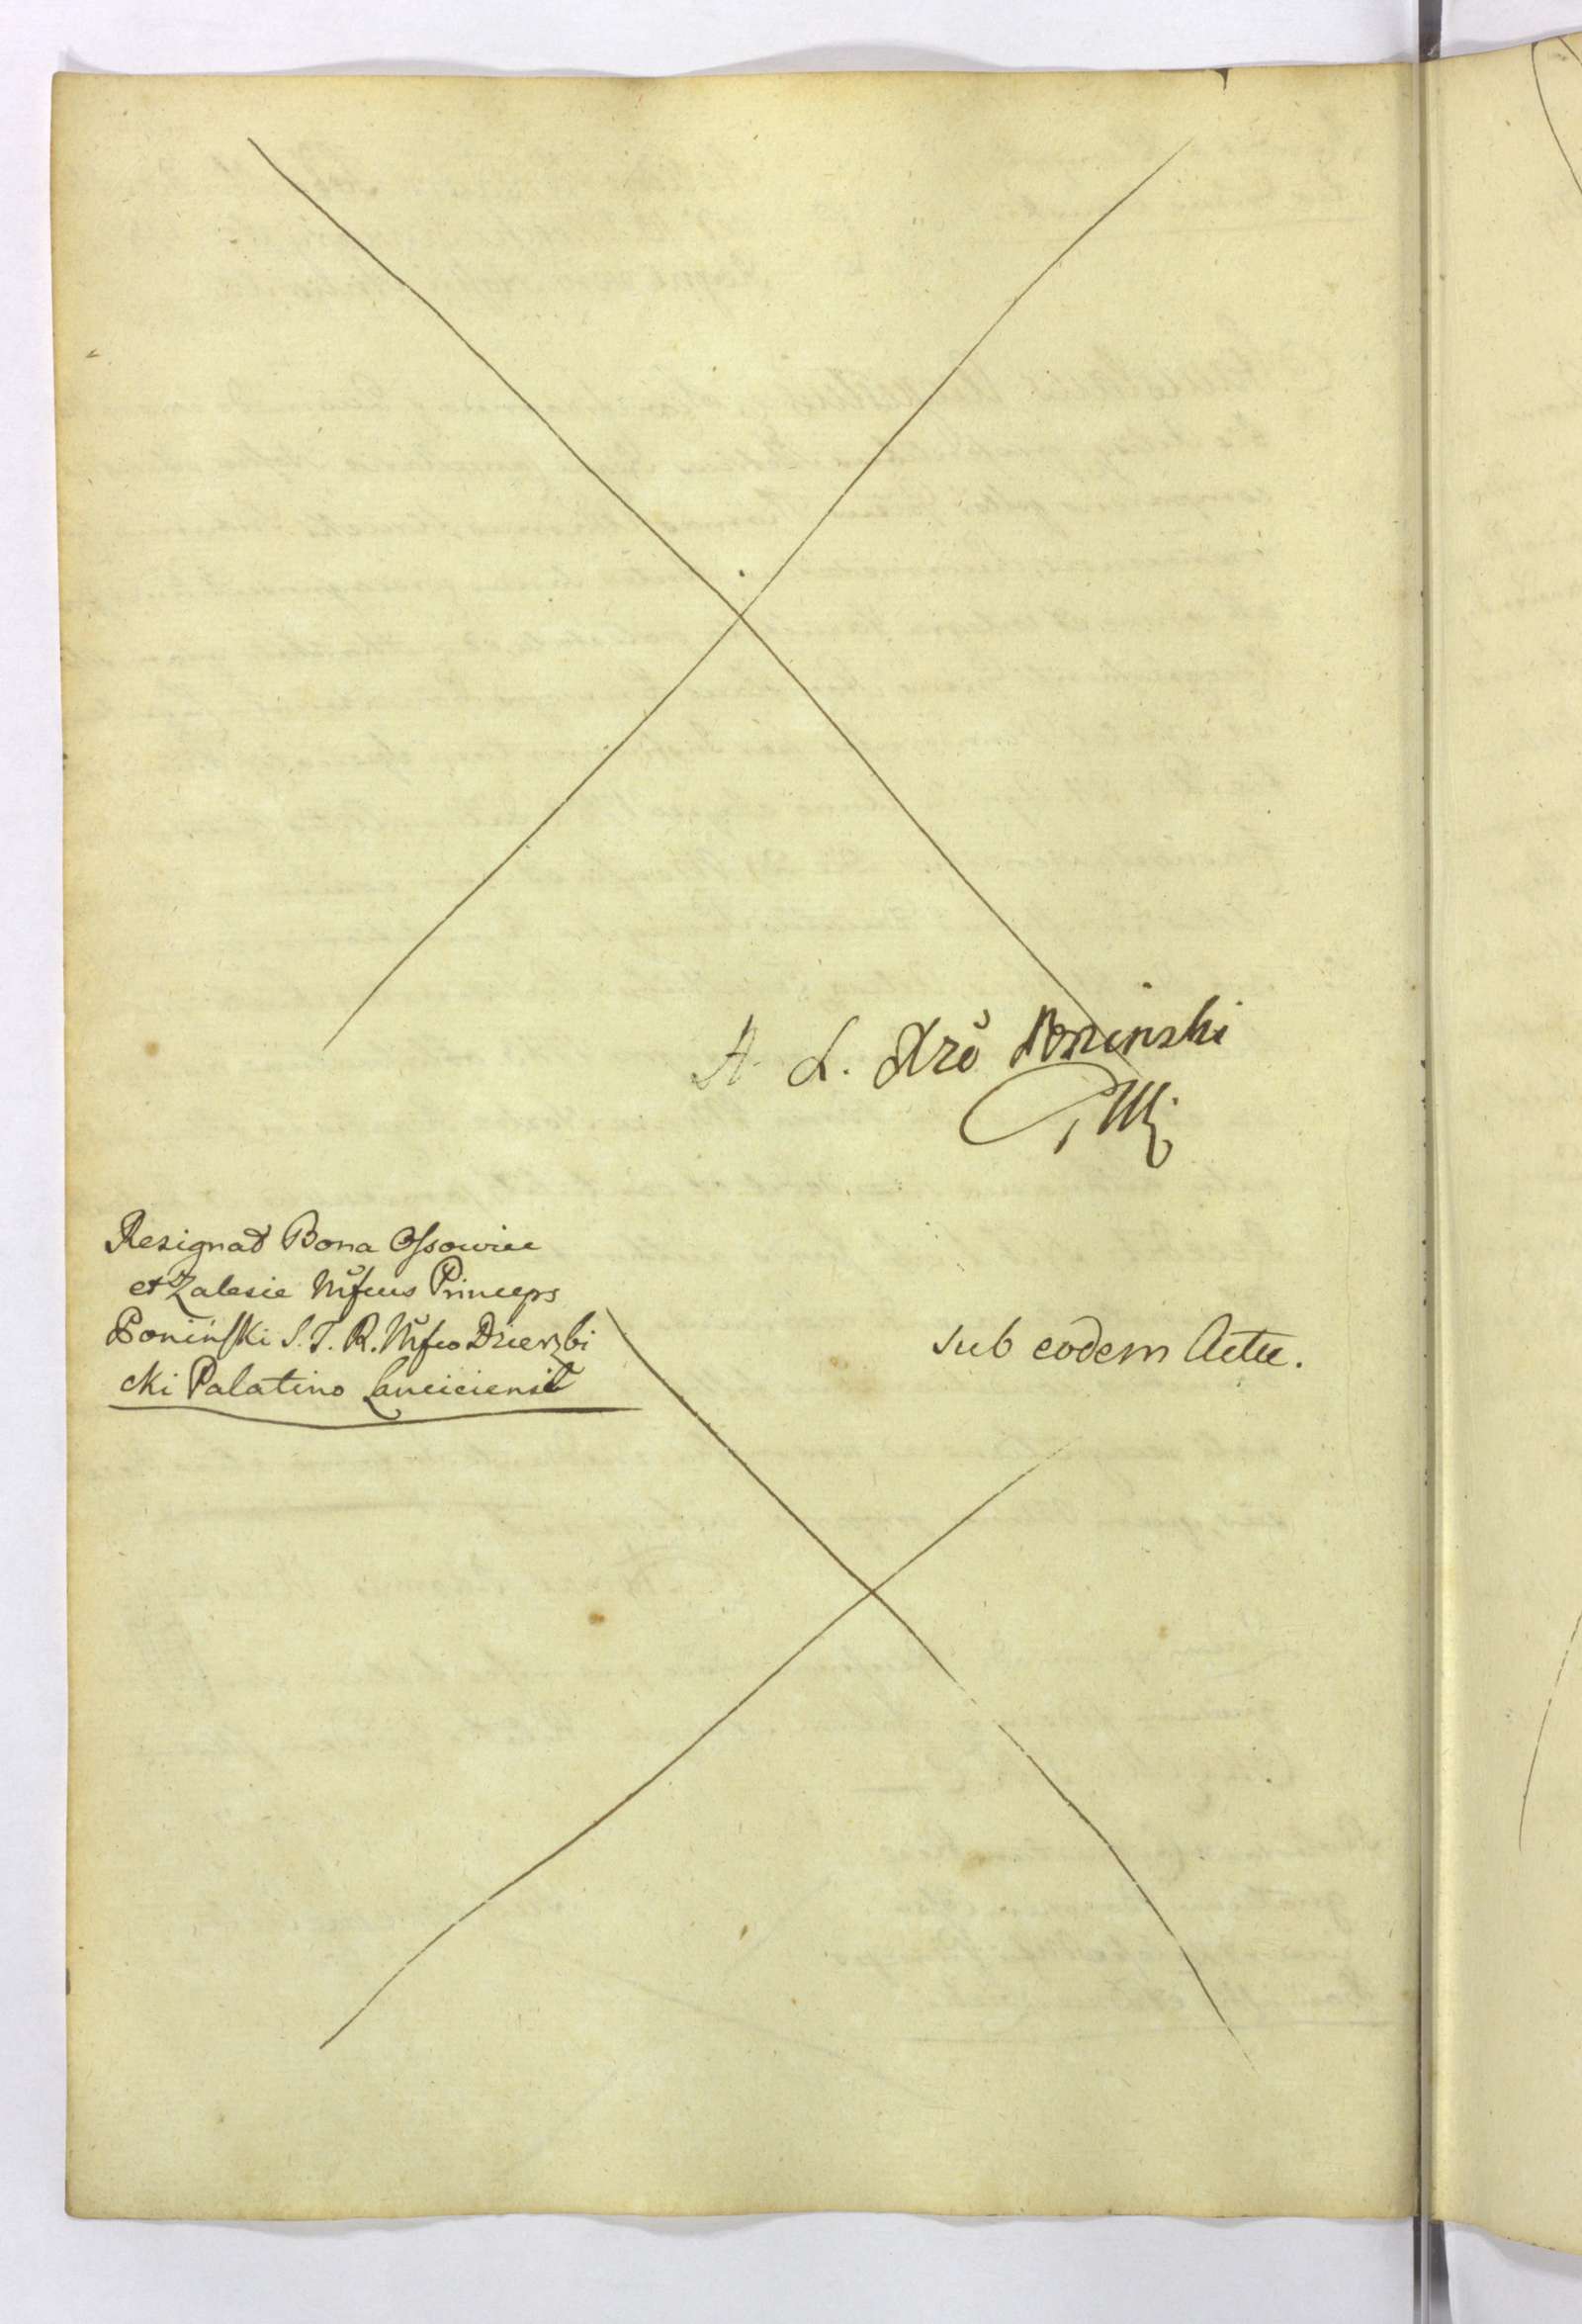 A. L. Xzē Poninski
Resignat Bona Ossowiec
et Zalesie Mĭfcus Princeps
Poninski S. T. R. Mĭfco Dzierzbi
cki Palatino Lanciciensi
sub eodem Actu.